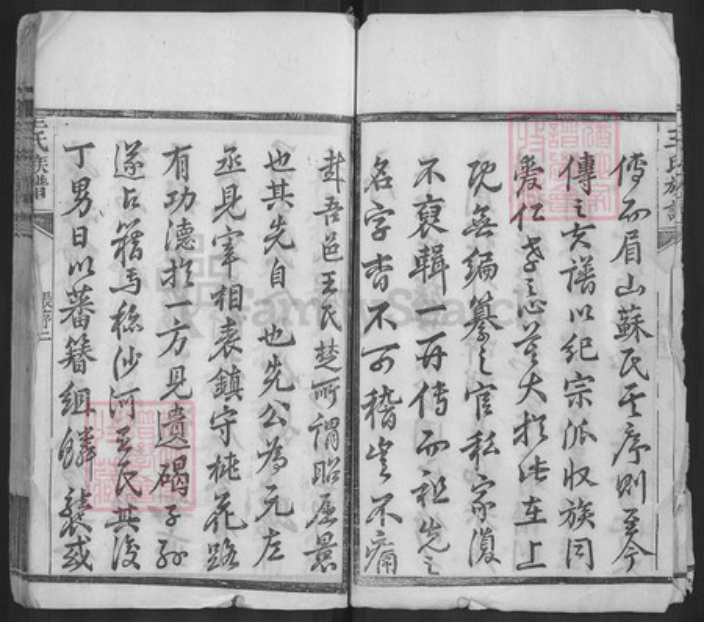 傳而眉山蘇氏其序則至今
傳之夫譜以紀宗派收族同
愛仁孝之心莫大於此在上
既無編纂之官私家復
不裒輯一冊傳而祖先之
名字杳不可稽豈不痛
哉吾邑王氏楚所謂昭屈景
也其先自 也先公為元左
丞見宰相表鎮守桃花路
有功德於一方見遺碣子孫
遂占籍焉稱沙河王氏其後
丁男日以蕃簪組鱗襲或
王氏族譜
張序二
王氏族譜
FamilySearch